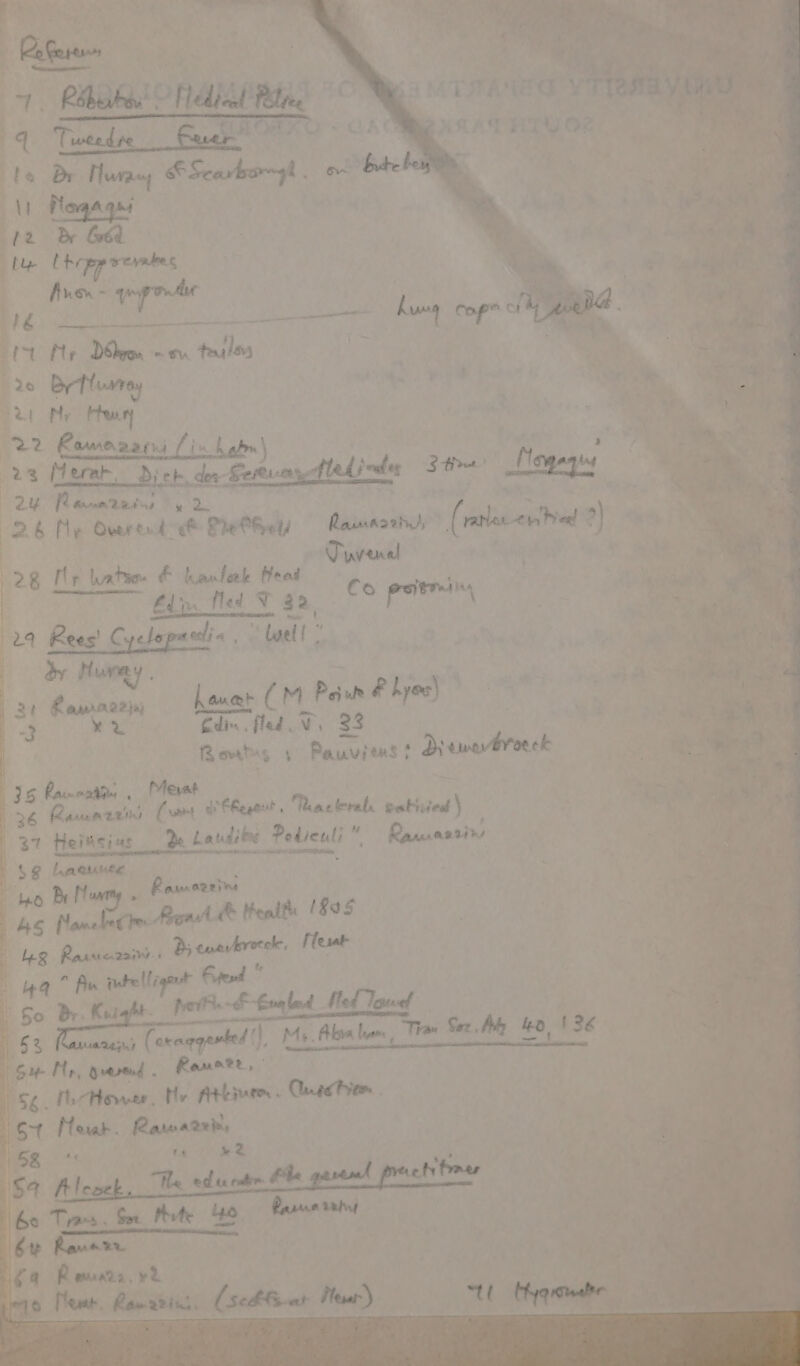 References
7. Roberton: Medical Police
9 Tweedie Fever
10 Dr Murray of Scarborough. on butchery
11 Morgagni
12 Dr Good
14 Hippocrates
Anon - gunpowder
16 Lung capacity
17 Mr Dobson - on tailors
20 Dr Murray
21 Mr Henry
22 Ramazzini (in
23 Merat, Dict. des Sciences Medicales 3 time Morgagni
24 Ramazzini x 2
26 Mr Overend of Sheffield Ramazzini (rather critical ?)
Juvenal
28 Mr Watson of Wanlock Head Co poisoning
Edin. Med V 32,
29 Rees' Cyclopaedia, "Well"
Dr Murray.
31 Ramazzini Lancet (M Point of Lyons)
-3 x 2 Edin. Med. V. 33
Bontius; Pauviens; Diemerbroeck
35 Ramazzini, Merat
36 Ramazzini (very different, Thackrah satisfied)
37 Heinsius De Laudibus Pediculi", Ramazzini
38 Laennec
40 Dr Murray. Ramazzini
45 Manchester Board of Health 1805
48 Ramazzini, Diemerbroeck, Merat
49 "An intelligent friend"
50 Dr. Knight. North-of-England Med Journal
53 Ramazzini (exaggerated!), Mr. Abraham, Tran Soc. Arts 40, 136
54 Mr. Overend. Ramazz,
56. Mr Horner. Mr Atkinson.
57 Merat. Ramazzini,
58 " " x 2
59 Alcock, The education of the general practitioner
60 Trans. Soc Arts 40 Ramazzini
64 Ramazz
69 Ramazz. x2
70 Merat. Ramazzini. (scoffs at Merat) 71 Hygrometer